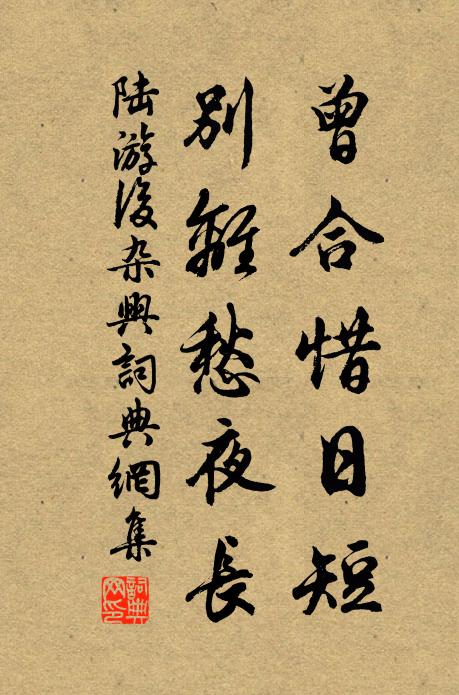 曾合惜日短
別離愁夜長
陆游後杂興詞典網集
詞典网印